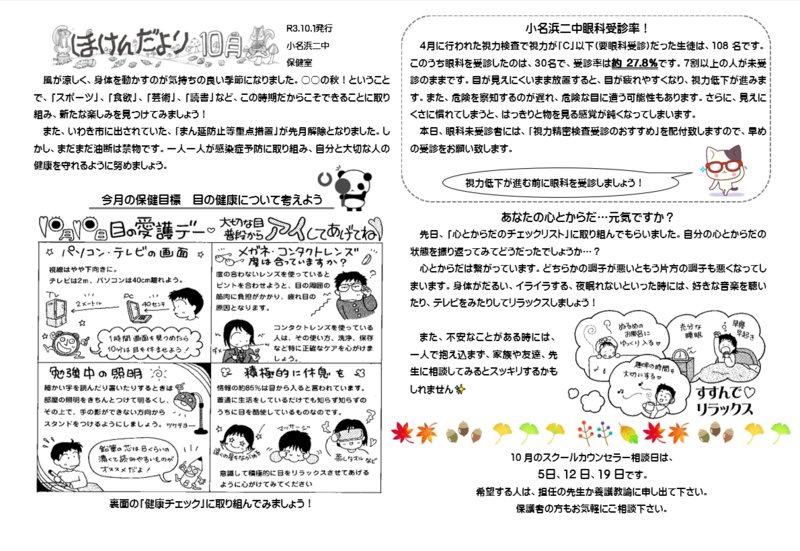 ほけんだより 10月
R3.10.1発行
小名浜二中
保健室
風が涼しく、身体を動かすのが気持ちの良い季節になりました。○○の秋！ということ
で、「スポーツ」、「食欲」、「芸術」、「読書」など、この時期だからこそできることに取り
組み、新たな楽しみを見つけてみましょう！
また、いわき市に出されていた、「まん延防止等重点措置」が先月解除となりました。し
かし、まだまだ油断は禁物です。一人一人が感染症予防に取り組み、自分と大切な人の
健康を守れるように努めましょう。
今月の保健目標　目の健康について考えよう
10月10日目の愛護デー
大切な目
普段から
アイしてあげてね
パソコン・テレビの画面
視線はやや下向きに。
テレビは2m、パソコンは40cm離れよう。
TV
2メートル
PC
40センチ
1時間画面を見つめたら
10分は目を休ませよう！
メガネ・コンタクトレンズ
度は合っていますか？
度の合わないレンズを使っていると
ピントを合わせようと、目の周囲の
筋肉に負担がかかり、疲れ目の
原因となります。
コンタクトレンズを使っている
人は、その使い方、洗浄、保存
など特に正確なケアを心がけま
しょう。
勉強中の照明
細かい字を読んだり書いたりするときは
部屋の照明をきちんとつけて明るくし、
その上で、手の影ができない方向から
スタンドをつけるようにしましょう。
鉛筆の芯はBくらいの
濃くて読みやすいものが
オススメだよ！
積極的に休息を
情報の約85%は目から入ると言われています。
普通に生活をしているだけでも知らず知らずの
うちに目を酷使しているものなのです。
マッサージ
遠くの星をながめる
蒸しタオルなど
意識して積極的に目をリラックスさせてあげる
ように心がけてみてください
裏面の「健康チェック」に取り組んでみましょう！
小名浜二中眼科受診率！
4月に行われた視力検査で視力が「C」以下(要眼科受診)だった生徒は、108 名です。
このうち眼科を受診したのは、30名で、受診率は約 27.8%です。7割以上の人が未受
診のままです。目が見えにくいまま放置すると、目が疲れやすくなり、視力低下が進みま
す。また、危険を察知するのが遅れ、危険な目に遭う可能性もあります。さらに、見えに
くさに慣れてしまうと、はっきりと物を見る感覚が鈍くなってしまいます。
本日、眼科未受診者には、「視力精密検査受診のおすすめ」を配付致しますので、早め
の受診をお願い致します。
視力低下が進む前に眼科を受診しましょう！
あなたの心とからだ…元気ですか？
先日、「心とからだのチェックリスト」に取り組んでもらいました。自分の心とからだの
状態を振り返ってみてどうだったでしょうか…？
心とからだは繋がっています。どちらかの調子が悪いともう片方の調子も悪くなってし
まいます。身体がだるい、イライラする、夜眠れないといった時には、好きな音楽を聴い
たり、テレビをみたりしてリラックスしましょう！
また、不安なことがある時には、
一人で抱え込まず、家族や友達、先
生に相談してみるとスッキリするかも
しれません
ぬるめの
お風呂に
ゆっくり入る
充分な
睡眠
早寝
早起き
趣味の時間も
大切にする
すすんで
リラックス
10 月のスクールカウンセラー相談日は、
5日、12 日、19 日です。
希望する人は、担任の先生か養護教諭に申し出て下さい。
保護者の方もお気軽にご相談下さい。